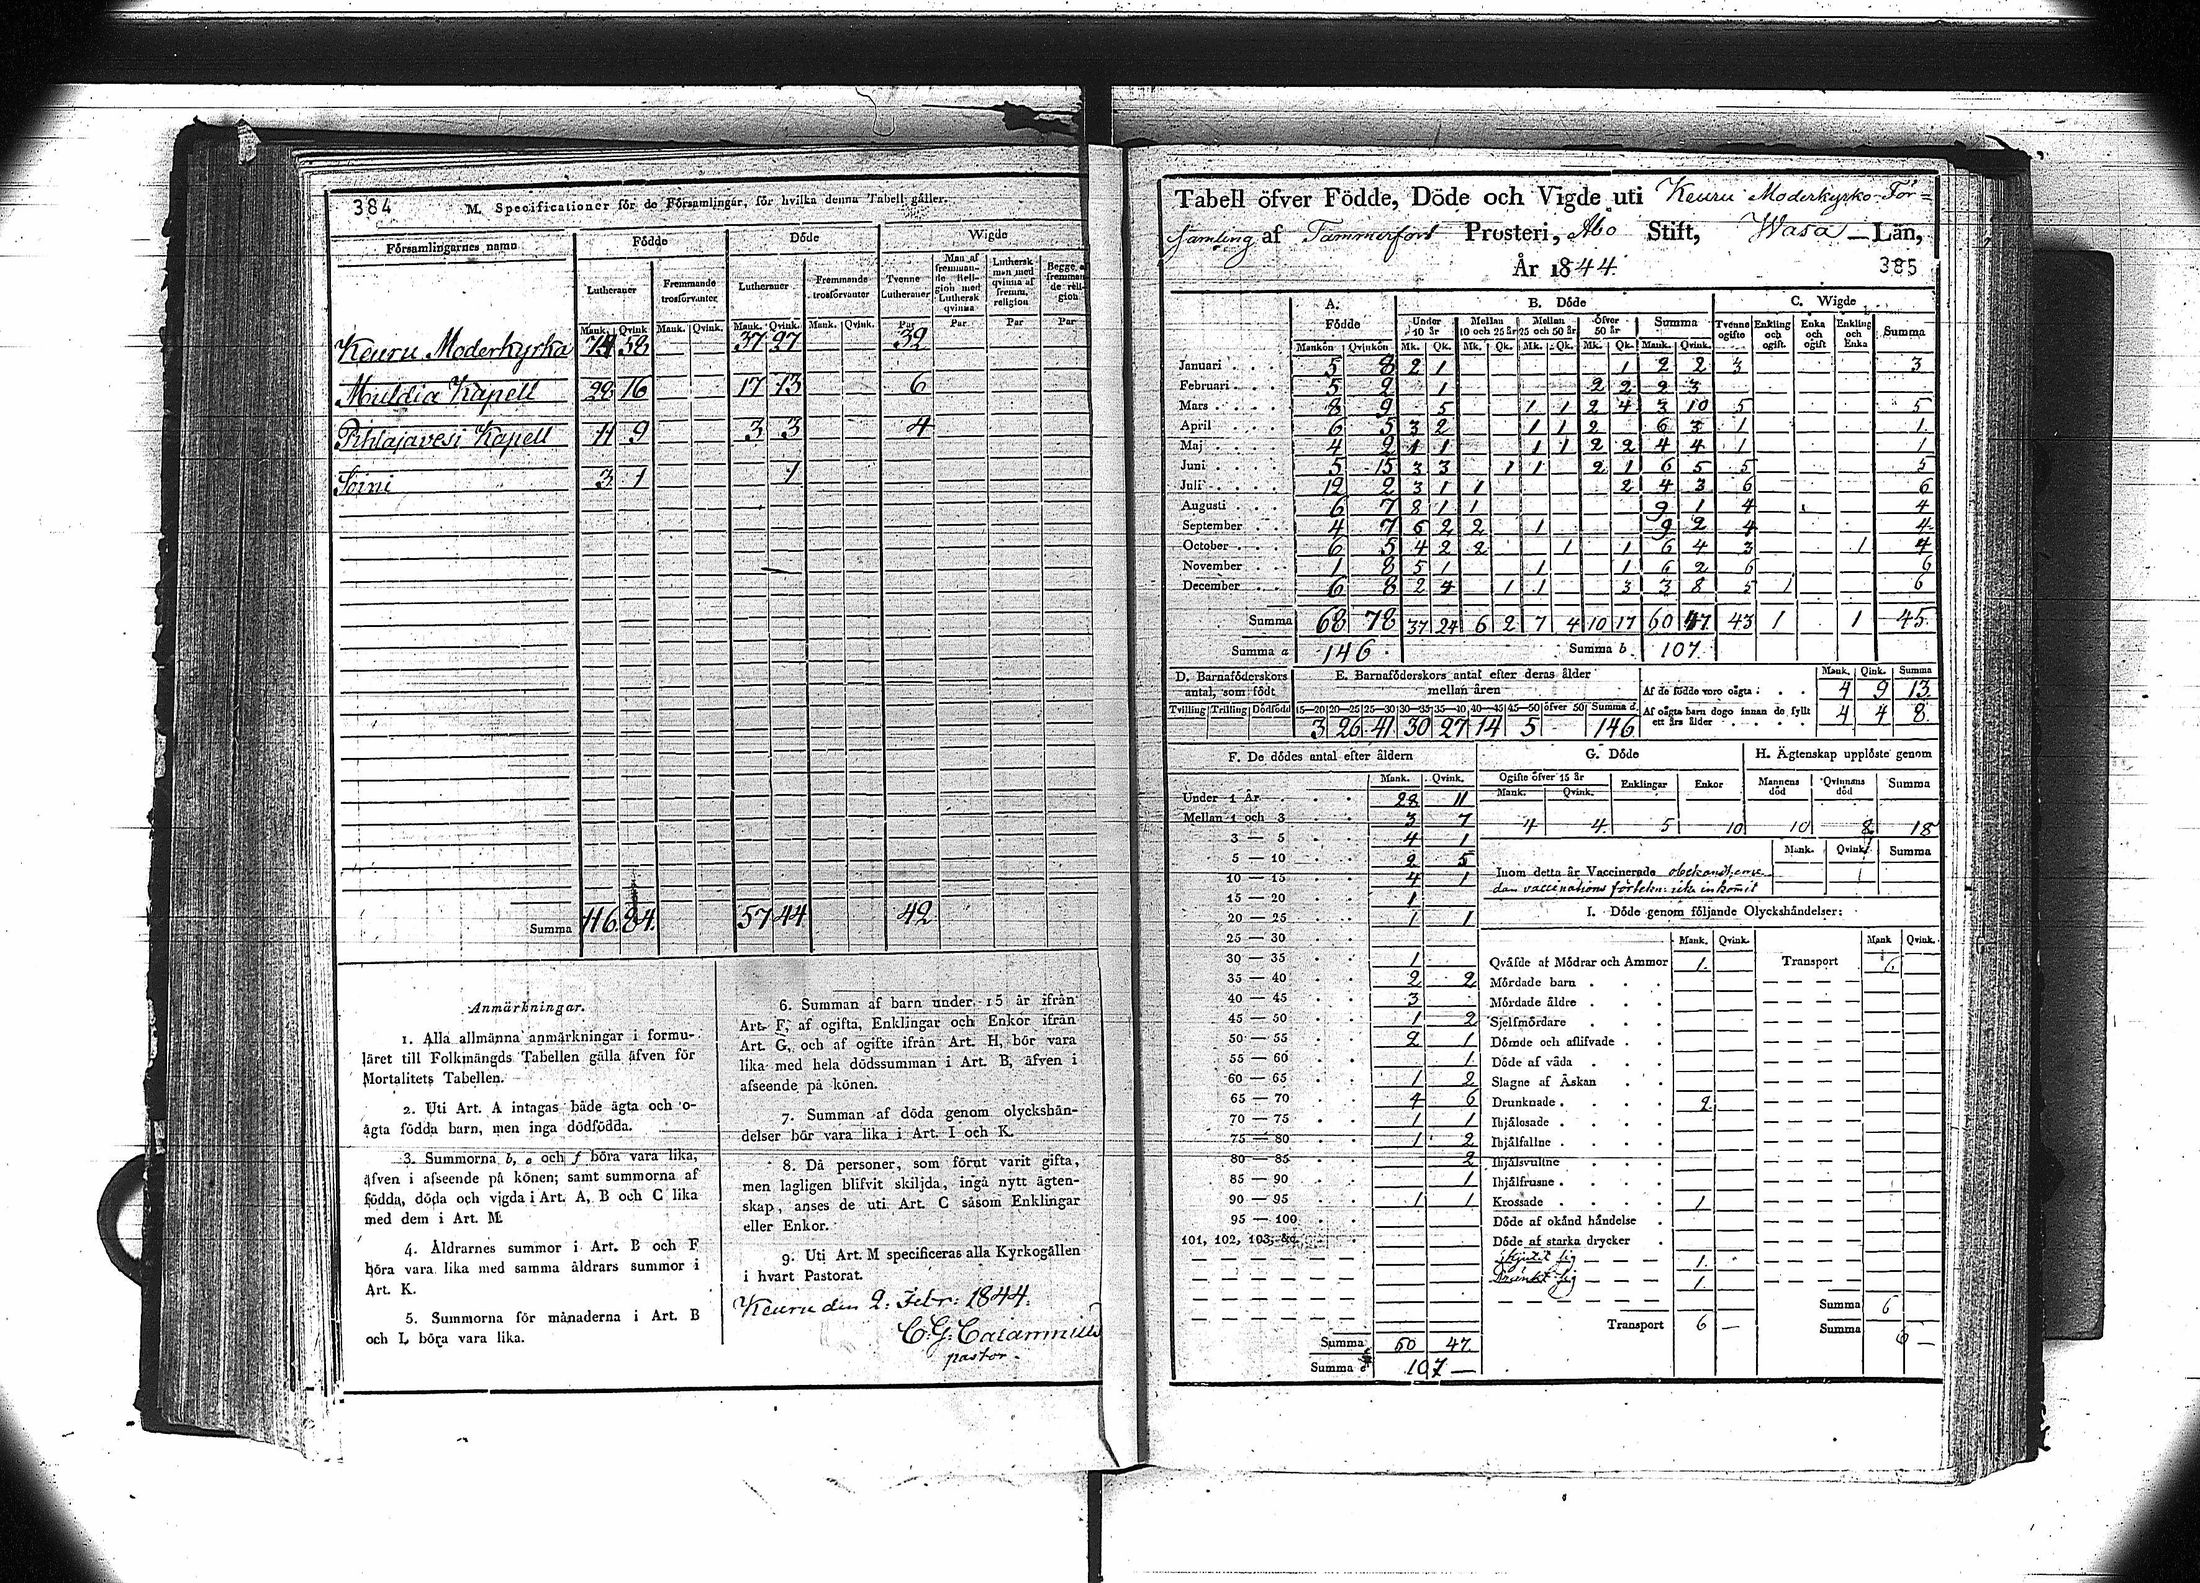 384
M. Specificationer för de Församlingar, för hvilka denna Tabell gäller.
Församlingarnes namn Födde Döde Wigde
Lutheraner Fremmande trosförvanter Lutheraner Fremmande trosförvanter Tvenne Lutheraner Man af fremmande Religion med Luthersk qvinna Luthersk man med qvinna af fremm. religion Begge af fremmande religion
Mank. Qvink Mank. Qvink. Mank. Qvink. Mank. Qvink. Par Par Par Par
Keuru Moderkyrka 74 58 37 27 32
Muldia Kapell 28 16 17 13 6
Pihlajavesi Kapell 11 9 3 3 4
Soini 3 1 1
Summa 116 84. 57 44 42
Anmärkningar.
1. Alla allmänna anmärkningar i formu-
läret till Folkmängds Tabellen gälla äfven för
Mortalitets Tabellen.
2. Uti Art. A intagas både ägta och o-
ägta födda barn, men inga dödfödda.
3. Summorna b, e och f böra vara lika,
äfven i afseende på könen; samt summorna af
födda, döda och vigda i Art. A, B och C lika
med dem i Art. M.
4. Åldrarnes summor i Art. B och F
böra vara lika med samma åldrars summor i
Art. K.
5. Summorna för månaderna i Art. B
och L böra vara lika.
6. Summan af barn under 15 år ifrån
Art. F, af ogifta, Enklingar och Enkor ifrån
Art. G, och af ogifte ifrån Art. H, bör vara
lika med hela dödssumman i Art. B, äfven i
afseende på könen.
7. Summan af döda genom olyckshän-
delser bör vara lika i Art. I och K.
8. Då personer, som förut varit gifta,
men lagligen blifvit skiljda, ingå nytt ägten-
skap, anses de uti Art. C såsom Enklingar
eller Enkor.
9. Uti Art. M specificeras alla Kyrkogällen
i hvart Pastorat.
Keuru den 2. Febr: 1844.
C. G.
pastor.
Tabell öfver Födde, Döde och Vigde uti Keuru Moderkyrko För=
samling af Tammerfors Prosteri, Åbo Stift, Wasa Län,
År 1844. 385
A. Födde B. Döde C. Wigde
Under 10 år Mellan 10 och 25 år Mellan 25 och 50 år Öfver 50 år Summa Tvenne ogifte Enkling och ogift. Enka och ogift Enkling och Enka Summa
Mankön Qvinkön Mk. Qk. Mk. Qk. Mk. Qk. Mk. Qk. Mank. Qvink.
Januari 5 8 2 1 1 2 2 3 3
Februari 5 2 1 2 2 2 3
Mars 8 9 5 1 1 2 4 3 10 5 5
April 6 5 3 2 1 1 2 6 3 1 1
Maj 4 2 1 1 1 1 2 2 4 4 1 1
Juni 5 15 3 3 1 1 2 1 6 5 5 5
Juli 12 2 3 1 1 2 4 3 6 6
Augusti 6 7 8 1 1 9 1 4 4
September 4 7 6 2 2 1 9 2 4 4
October 6 5 4 2 2 1 1 6 4 3 1 4
November 1 8 5 1 1 1 6 2 6 6
December 6 8 2 4 1 1 3 3 8 5 1 6
Summa 68 78 37 24 6 2 7 4 10 17 60 47 43 1 1 45
Summa a 146 Summa b 107.
D. Barnaföderskors antal, som födt
Tvilling Trilling Dödfödd
E. Barnaföderskors antal efter deras ålder mellan åren
15—20 20—25 25—30 30—35 35—40 40—45 45—50 öfver 50 Summa d.
3 26 41 30 27 14 5 146
Mank. Qink. Summa
Af de födde voro oägta 4 9 13
Af oägta barn dogo innan de fyllt ett års ålder 4 4 8
F. De dödes antal efter åldern
Mank. Qvink.
Under 1 År 28 11
Mellan 1 och 3 3 7
3 — 5 4 1
5 — 10 2 5
10 — 15 4 1
15 — 20 1
20 — 25 1 1
25 — 30
30 — 35 1
35 — 40 2 2
40 — 45 3
45 — 50 1 2
50 — 55 2 1
55 — 60 1
60 — 65 1 2
65 — 70 4 6
70 — 75 1 1
75 — 80 1 2
80 — 85 2
85 — 90 1
90 — 95 1 1
95 — 100
101, 102, 103, &c.
Summa 60 47
Summa 107
G. Döde
Ogifte öfver 15 år Enklingar Enkor
Mank. Qvink.
4 4 5 10
H. Ägtenskap upplöste genom
Mannens död Qvinnans död Summa
10 8 18
Mank. Qvink. Summa
Inom detta år Vaccinerade obekandt, eme-
dan vaccinations förtekn: icke inkomit
I. Döde genom följande Olyckshändelser:
Mank. Qvink. Mank Qvink.
Qväfde af Mödrar och Ammor 1. Transport 6
Mördade barn
Mördade äldre
Sjelfmördare
Dömde och aflifvade
Döde af våda
Slagne af Åskan
Drunknade 2
Ihjälosade
Ihjälfallne
Ihjälsvultne
Ihjälfrusne
Krossade 1
Döde af okänd händelse
Döde af starka drycker
Skjutit sig 1.
Dränkt sig 1.
Summa 6
Transport 6 — Summa 6 —